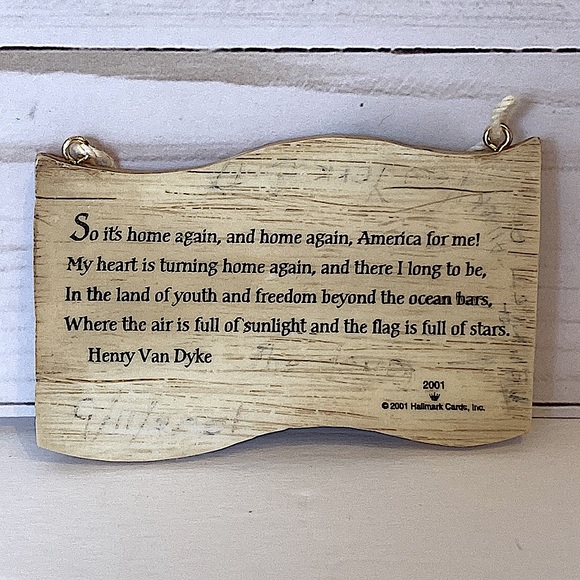 So it's home again, and home again, America for me!
My heart is turning home again, and there I long to be,
In the land of youth and freedom beyond the ocean bars,
Where the air is full of sunlight and the flag is full of stars.
Henry Van Dyke
2001
© 2001 Hallmark Cards, Inc.